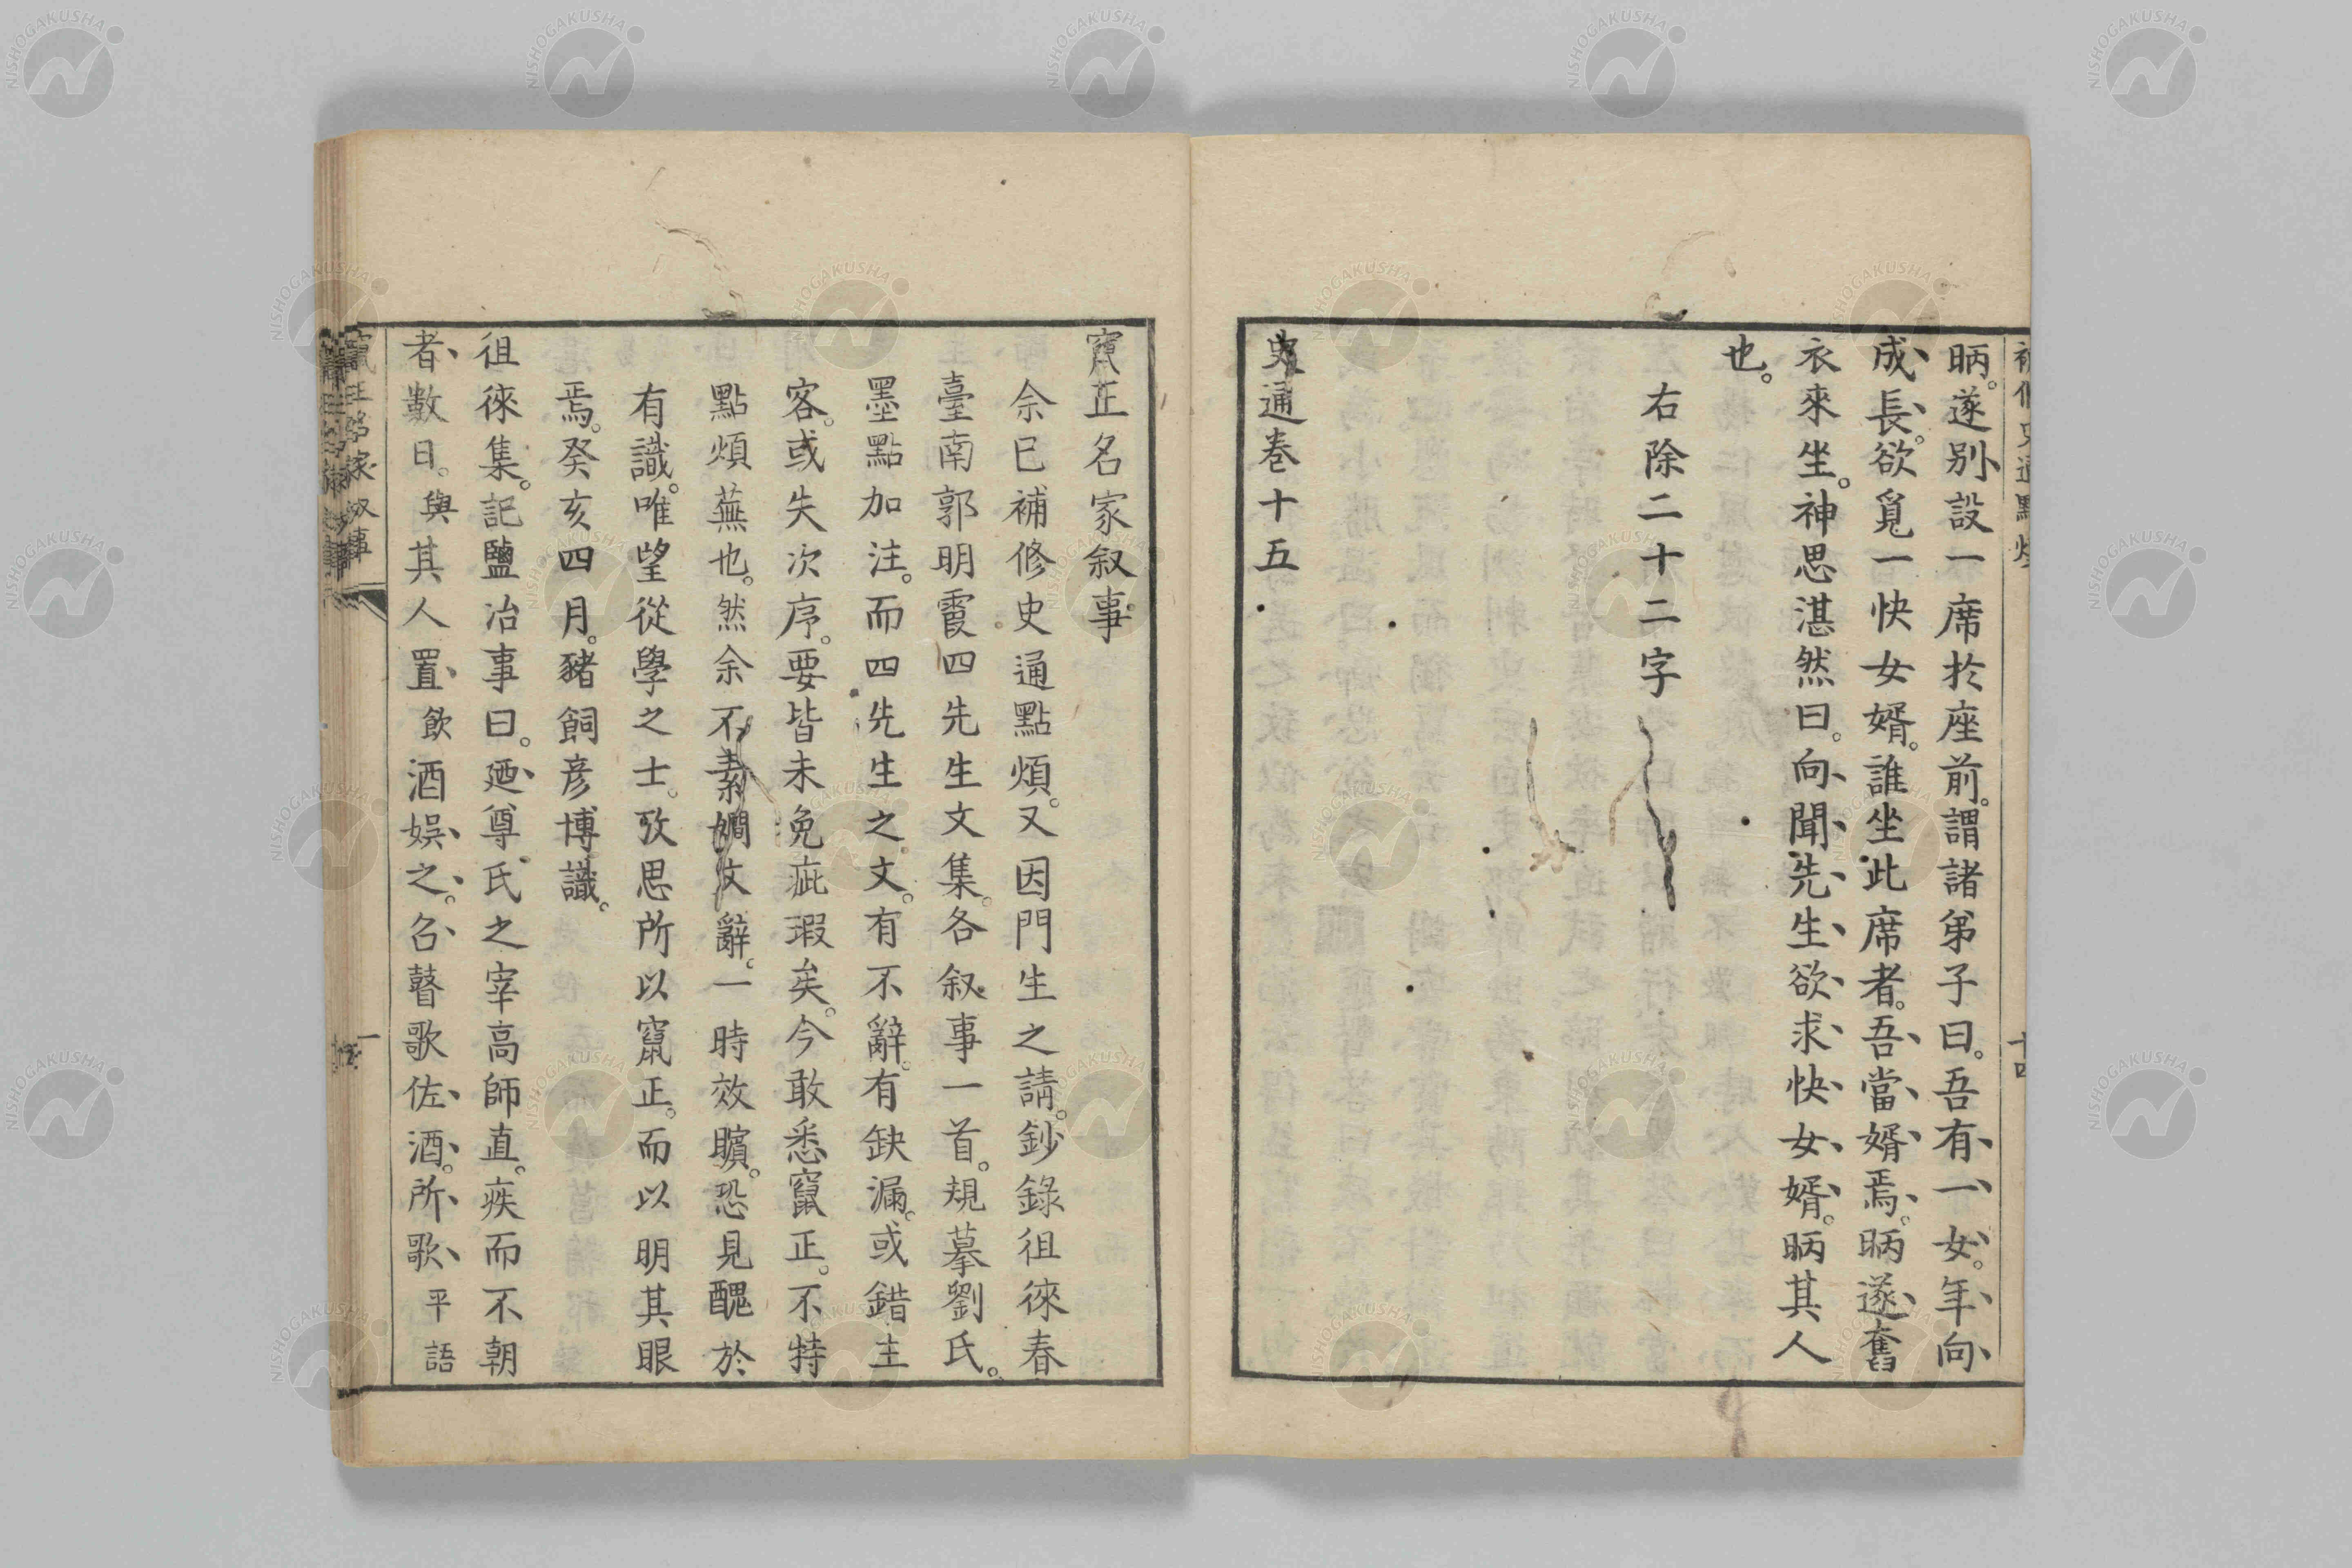 補修史通點煩
十四
昞。遂別設一席於座前。謂諸弟子曰。吾有一女。年向
成長。欲覓一快女婿。誰坐此席者。吾當婿焉。昞遂奮
衣來坐。神思湛然曰。向聞先生欲求快女婿。昞其人
也。
右除二十二字
史通卷十五
竄正名家叙事
余已補修史通點煩。又因門生之請。鈔錄徂徠春
臺南郭明霞四先生文集。各叙事一首。規摹劉氏。
墨點加注。而四先生之文。有不辭。有缺漏。或錯主
客。或失次序。要皆未免疵瑕矣。今敢悉竄正。不特
點煩蕪也。然余不素嫺文辭。一時效矉。恐見醜於
有識。唯望從學之士。攷思所以竄正。而以明其眼
焉。癸亥四月。豬飼彦博識。
徂徠集。記鹽冶事曰。廼尊氏之宰高師直。疾而不朝
者數日。與其人置飲酒娯之。召瞽歌佐酒。所歌平語
竄正名家叙事
一